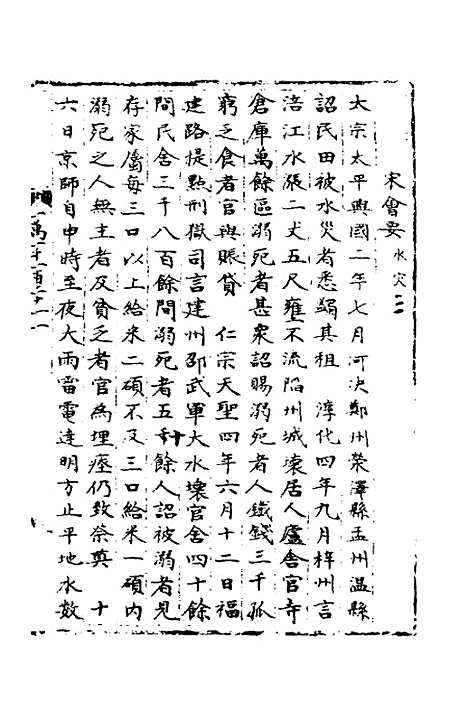 宋會要 水災二
太宗太平興國二年七月河決鄭州滎澤縣孟州溫縣
詔民田被水災者悉蠲其租 淳化四年九月梓州言
涪江水漲二丈五尺壅不流陷州城壞居人廬舍官寺
倉庫萬餘區溺死者甚衆詔賜溺死者人鐵錢三千孤
窮乏食者官與賑貸 仁宗天聖四年六月十二日福
建路提點刑獄司言建州邵武軍大水壞官舍四十餘
間民舍三千八百餘間溺死者五千餘人詔被溺者見
存家屬每三口以上給米二碩不及三口給米一碩内
溺死之人無主者及貧乏者官為埋瘞仍致祭奠 十
六日京師自申時至夜大雨雷電達明方止平地水數